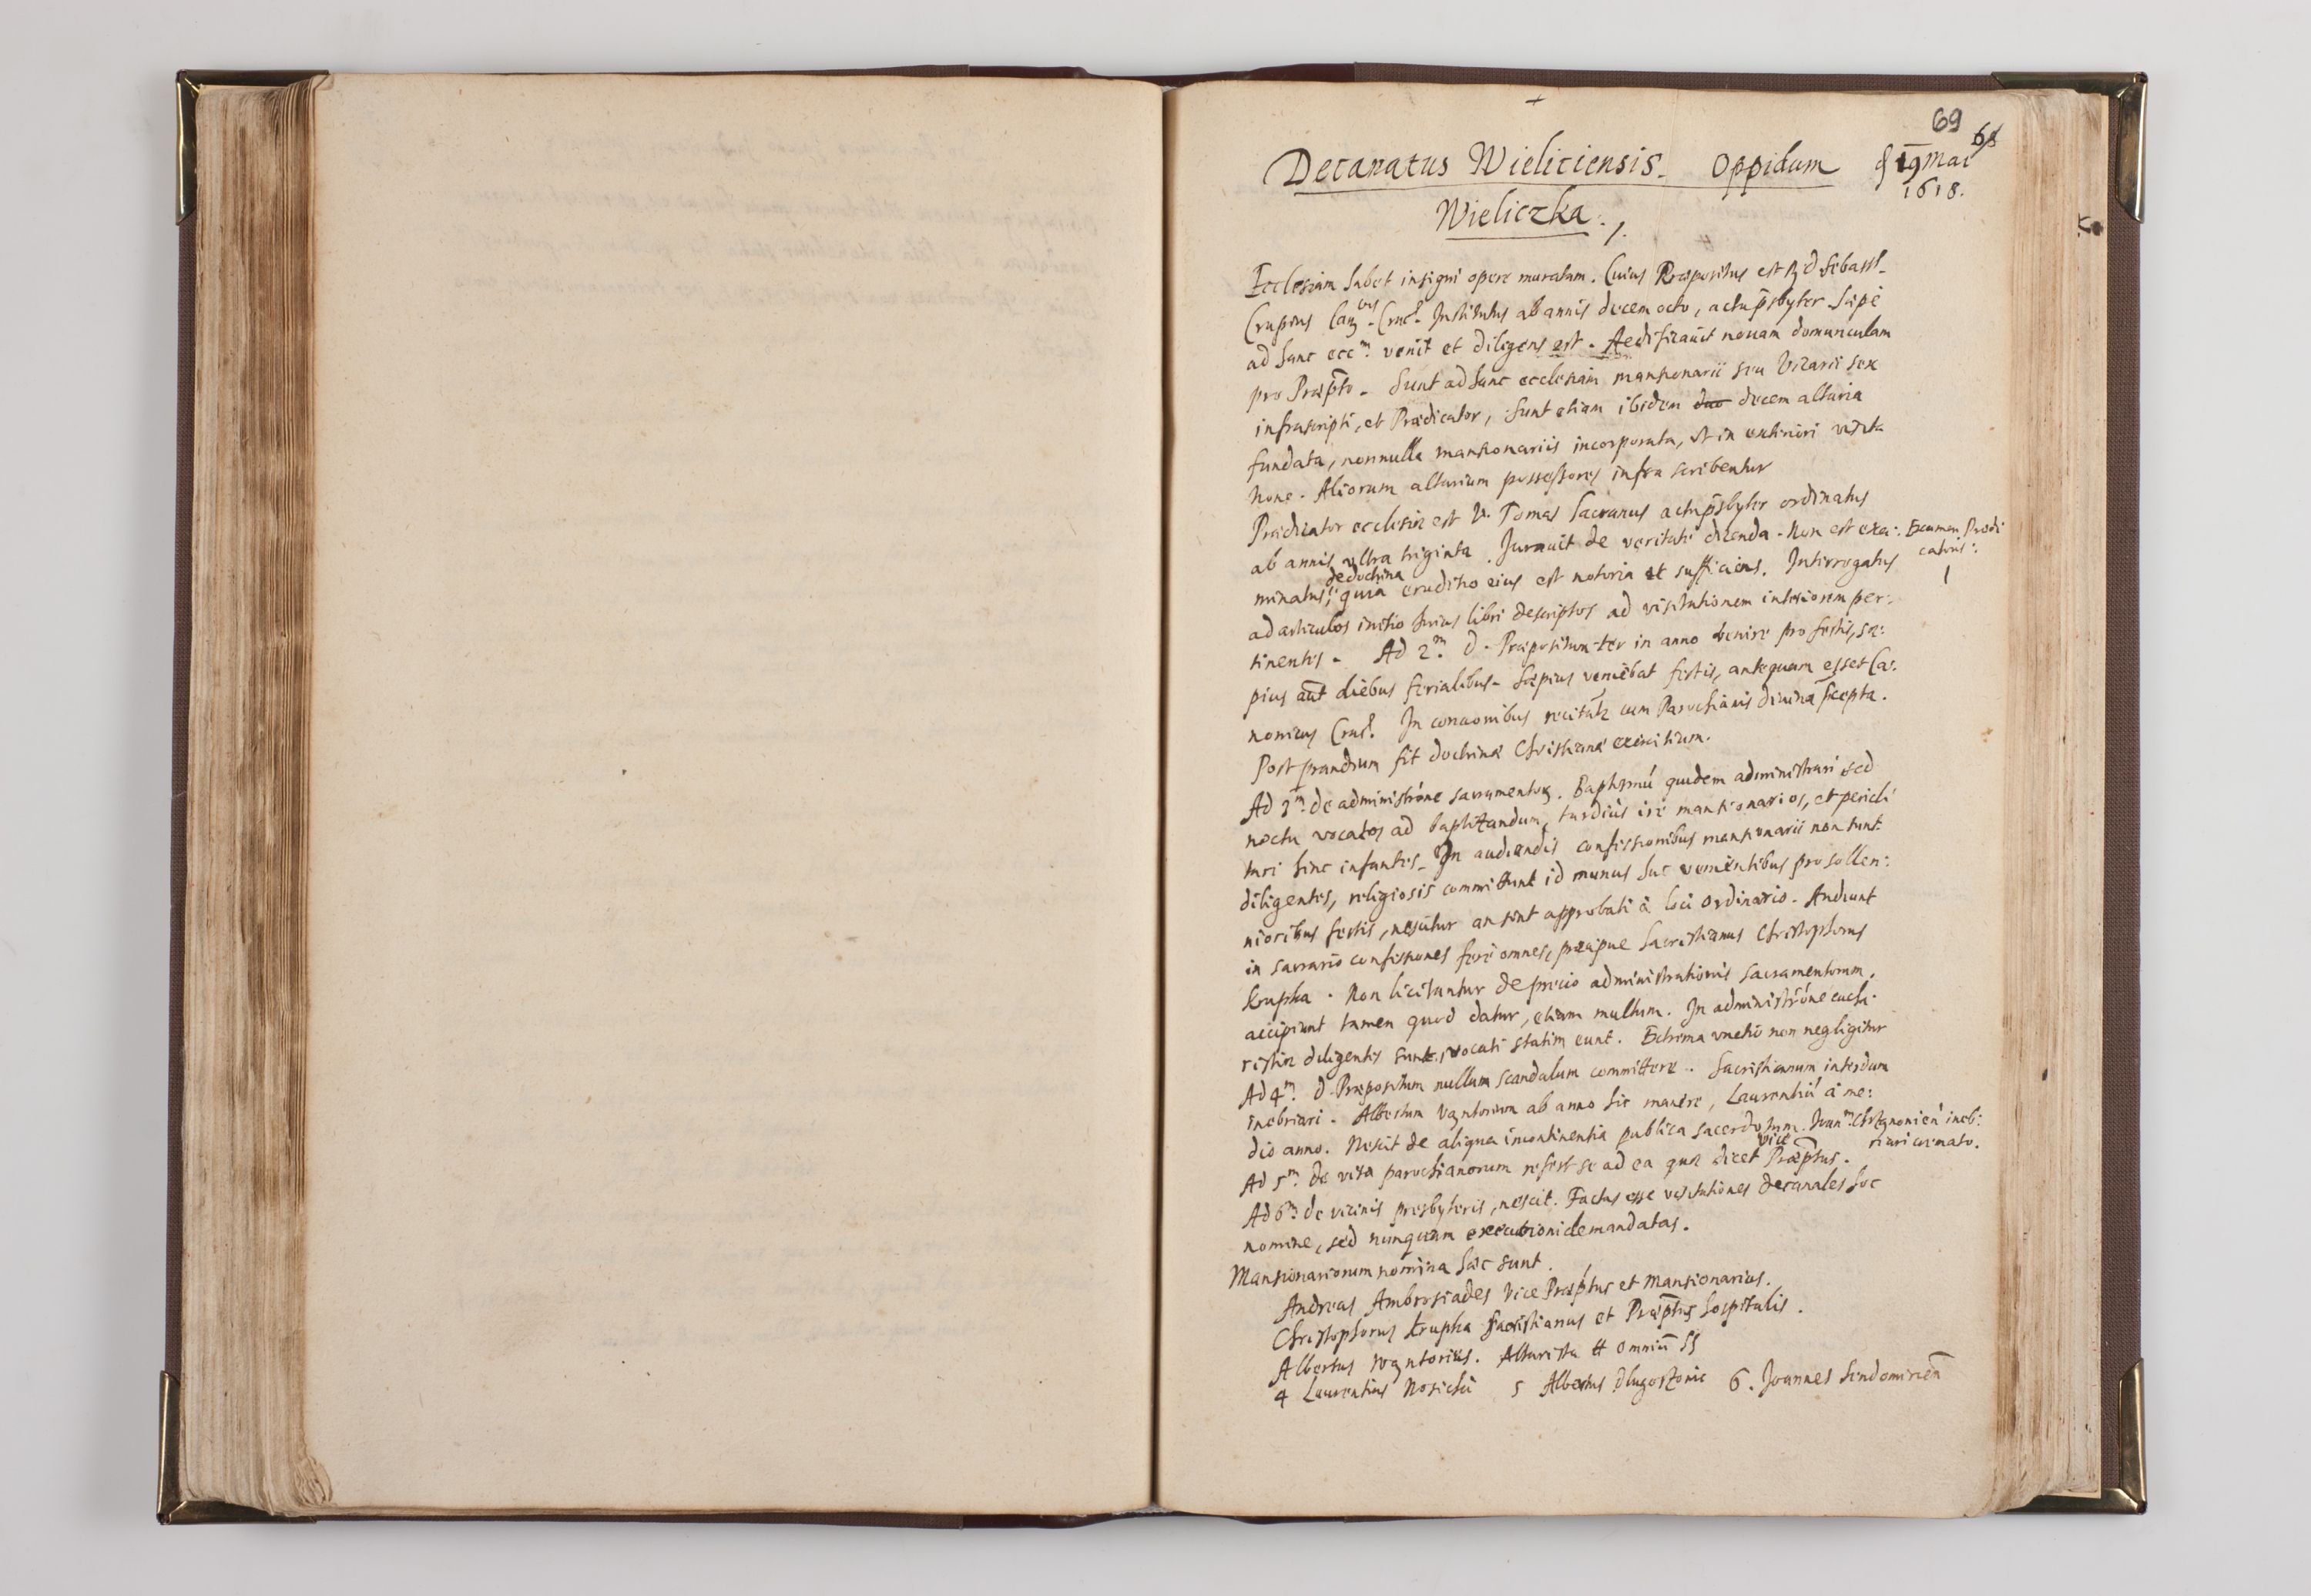 69
68
Decanatus Wieliciensis. Oppidum
19 Mai
1618.
Wieliczka.
Ecclesiam habet insigni opere muratam. Cuius Præpositus est Sebast.
Crupius Can. Crac. Institutus ab annis decem octo, actu psbyter sæpe
ad hanc ecc.m venit et diligens est. Aedificauit nouam domunculam
pro Præpto. Sunt ad hanc ecclesiam mansionarii seu Vicarii sex
infrascripti, et Prædicator, Sunt etiam ibidem duo decem altaria
fundata, nonnulla mansionariis incorporata, vt in exteriori visita
none. Aliorum altarium possessores infra scribentur
Prædicator ecclesiæ est V. Tomas Sacranus actu psbyter ordinatus
ab annis vltra triginta. Jurauit de veritate dicenda. Non est exa:
Examen Prædi
catoris:
1
de doctrina
minatus, quia eruditio eius est notoria et sufficiens. Interrogatus
ad articulos initio huius libri descriptos ad visitationem interiorem per:
tinentes. Ad 2.m D. Præpositum ter in anno venire pro festis, sæ:
pius aut diebus ferialibus. Sæpius veniebat festis, antequam esset Ca:
nonicus Crac. In concionibus cum Parochianis diuina præcepta.
Post prandium fit doctrinæ Christianæ exercitium.
Ad 3.m de administrone sacramentorum. Baptismu quidem administrari sed
noctu vocatos ad baptizandum, tardius ire mansionarios, et pericli
tari hinc infantes. In audiendis confessionibus mansionarii non sunt
diligentes, religiosis committunt id munus huc venientibus pro sollen:
nioribus festis, nescitur an sint approbati à loci ordinario. Audiunt
in sacrario confessiones fere omnes, præcipue Sacristianus Christophorus
Krupka. Non licitantur de precio administrationis sacramentorum.
accipiunt tamen quod datur, etiam multum. In administrone eucha:
ristiæ diligentes sunt, vocati statim eunt. Extrema vnctio non negligitur
Ad 4.m D. Præpositum nullum scandalum committere. Sacristianum interdum
inebriari. Albertum ab anno hic manere, Laurentiu à me:
dio anno. Nescit de aliqua incontinentia publica sacerdotum. ineb:
riari cremato.
vice
Ad 5.m de vita parochianorum refert se ad ea quæ dicet Præptus.
Ad 6.m de vicinis presbyteris, nescit. Factas esse visitationes decanales hoc
nomine, sed nunquam executioni demandatas.
Mansionariorum nomina hæc sunt.
Andreas Ambrosiades Vice Præptus et mansionarius.
Christophorus Krupka Sacristianus et Præptus hospitalis.
Albertus. Altarista omniu SS
4 Laurentius 5 Albertus 6. Joannes Sendomirien